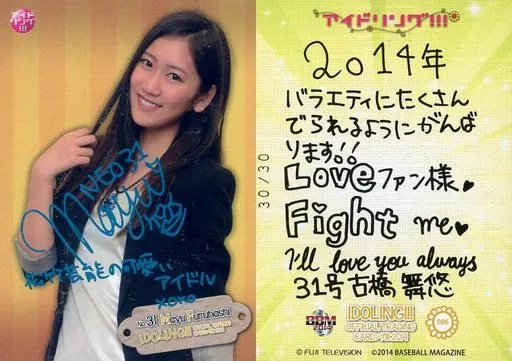 アイドリング!!!
NEO31
Mayuu
松竹芸能の可愛い
アイドル
xoxo
No.31 Mayu Furuhashi
IDOLING!!!
OFFICIAL TRADING
CARD
アイドリング!!!
2014年
バラエティにたくさん
でられるようにがんば
ります!!
Loveファン様♥
Fight me♥
I'll love you always
31号 古橋 舞悠
30/30
BBM
2014
IDOLING!!!
OFFICIAL TRADING
086
© FUJI TELEVISION ©2014 BASEBALL MAGAZINE